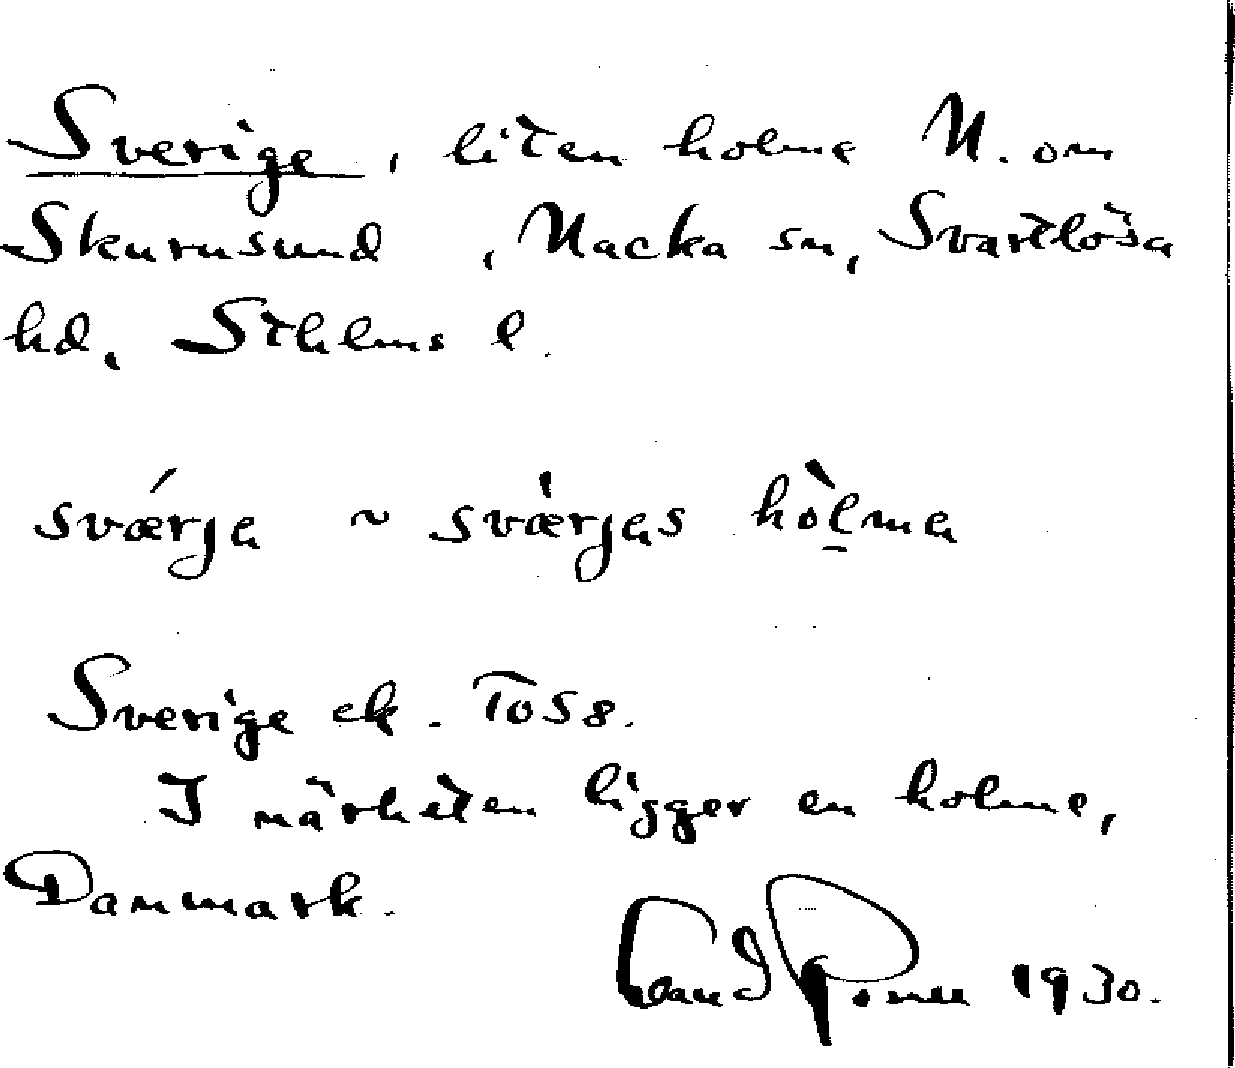 Sverige, liten holme N. om
Skurusund, Nacka sn, Svartlösa
hd, Sthlms l.
svǽrja ~ svæ̀rjas hòḷma
Sverige ek. To58.
I närheten ligger en holme,
Danmark.
1930.